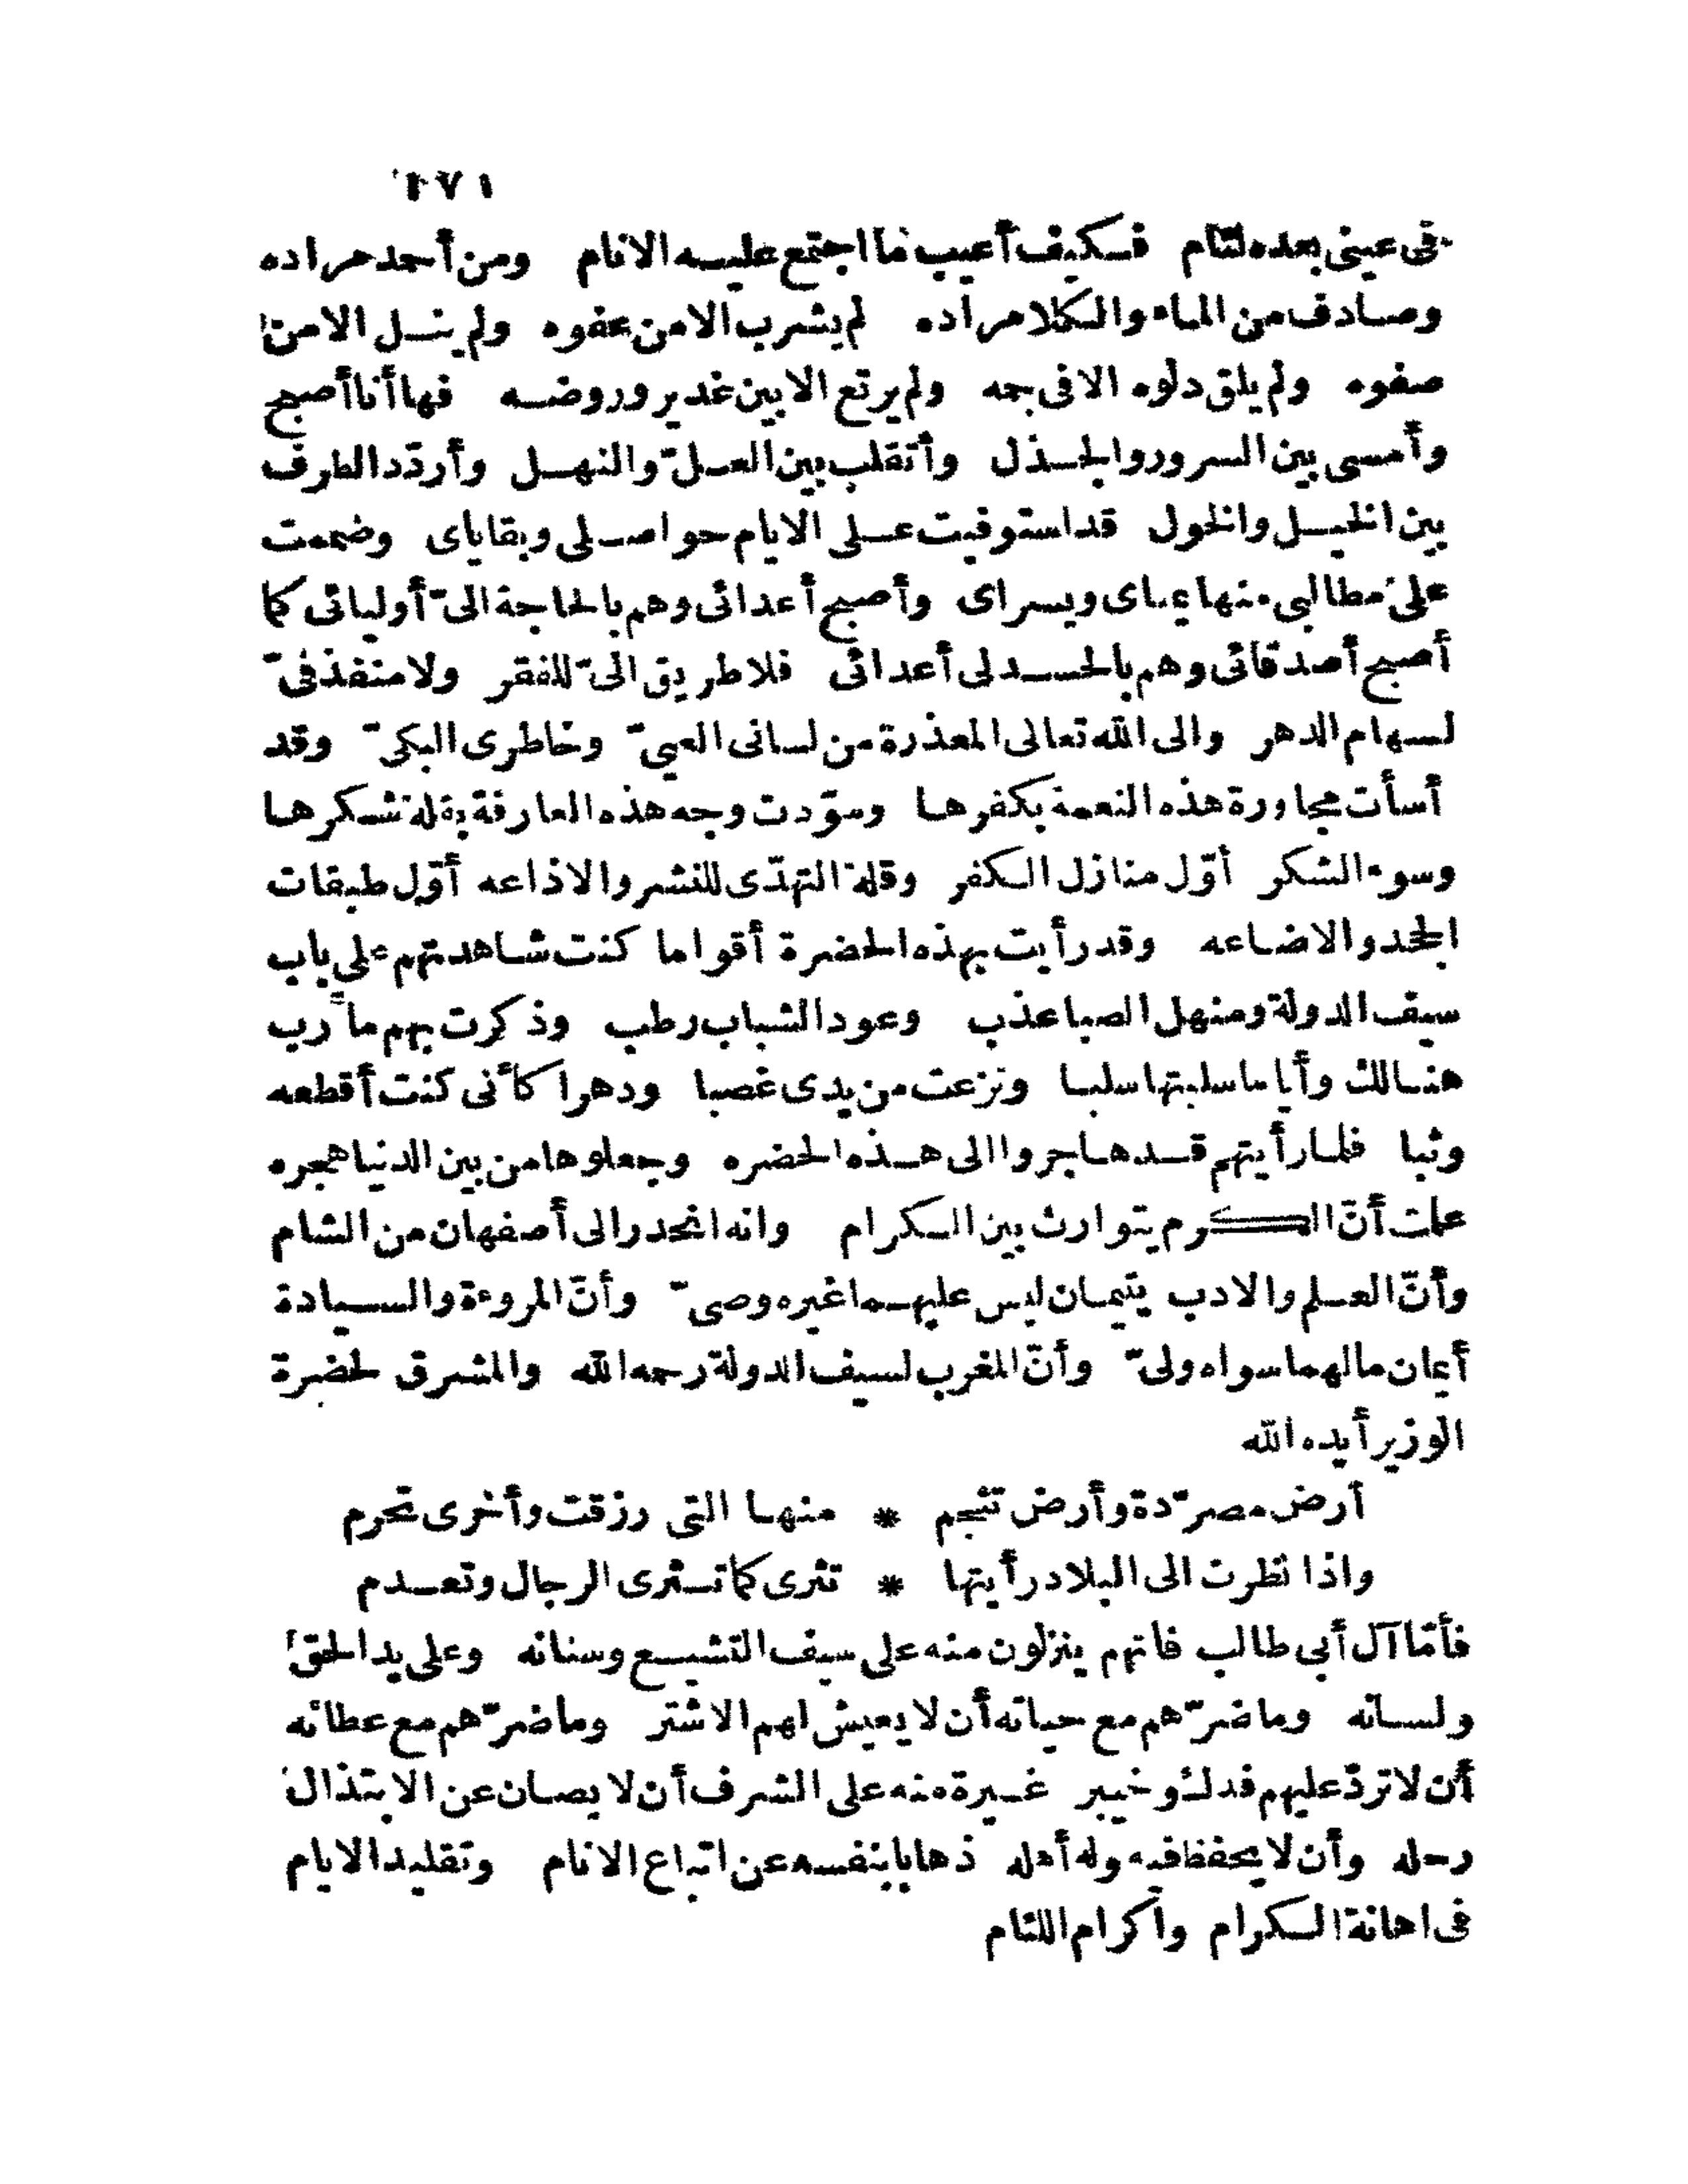 ١٧١
فى عينى بعده لئام فكيف أعيب ما اجتمع عليه الانام ومن أحمد مراده
وصادف من الماء والكلا مراده لم يشرب الا من عفوه ولم ينل الا من
صفوه ولم يلق دلوه الا فى جمه ولم يرتع الا بين غدير وروضه فها أنا أصبح
وأمسى بين السرور والجذل وأتقلب بين العلّ والنهل وأردّد الطرف
بين الخيل والخول قد استوفيت على الايام حواصلى وبقاياى وضممت
على مطالبى منها يمناى ويسراى وأصبح أعدائى وهم بالحاجة الىّ أوليائى كما
أصبح أصدقائى وهم بالحسد لى أعدائى فلا طريق الىّ للفقر ولا منفذ فىّ
لسهام الدهر والى الله تعالى المعذرة من لسانى العيىّ وخاطرى البكىّ وقد
أسأت مجاورة هذه النعمة بكفرها وسوّدت وجه هذه العارفة بقلة شكرها
وسوء الشكر أوّل منازل الكفر وقلة التهدّى للنشر والاذاعه أوّل طبقات
الجحد والاضاعه وقد رأيت بهذه الحضرة أقواما كنت شاهدتهم على باب
سيف الدولة ومنهل الصبا عذب وعود الشباب رطب وذكرت بهم مآرب
هنالك وأياما سلبتها سلبا ونزعت من يدى غصبا ودهرا كأنى كنت أقطعه
وثبا فلما رأيتهم قد هاجروا الى هذه الحضره وجعلوها من بين الدنيا هجره
علمت أنّ الكرم يتوارث بين الكرام وانه انحدر الى أصفهان من الشام
وأنّ العلم والادب يتيمان ليس عليهما غيره وصىّ وأنّ المروءة والسيادة
أيمان مالهما سواه ولىّ وأنّ المغرب لسيف الدولة رحمه الله والمشرق لحضرة
الوزير أيده الله
أرض مصرّدة وأرض تثجم * منها التى رزقت وأخرى تحرم
واذا نظرت الى البلاد رأيتها * تثرى كما تثرى الرجال وتعدم
فأمّا آل أبى طالب فانهم ينزلون منه على سيف التشيع وسنانه وعلى يد الحق
ولسانه وما ضرّهم مع حياته أن لا يعيش لهم الاشتر وما ضرّهم مع عطائه
أن لا تردّ عليهم فدك وخيبر غيرة منه على الشرف أن لا يصان عن الابتذال
رحله وأن لا يحفظ فيه وله أهله ذهابا بنفسه عن اتباع الانام وتقليد الايام
فى اهانة الكرام واكرام اللئام